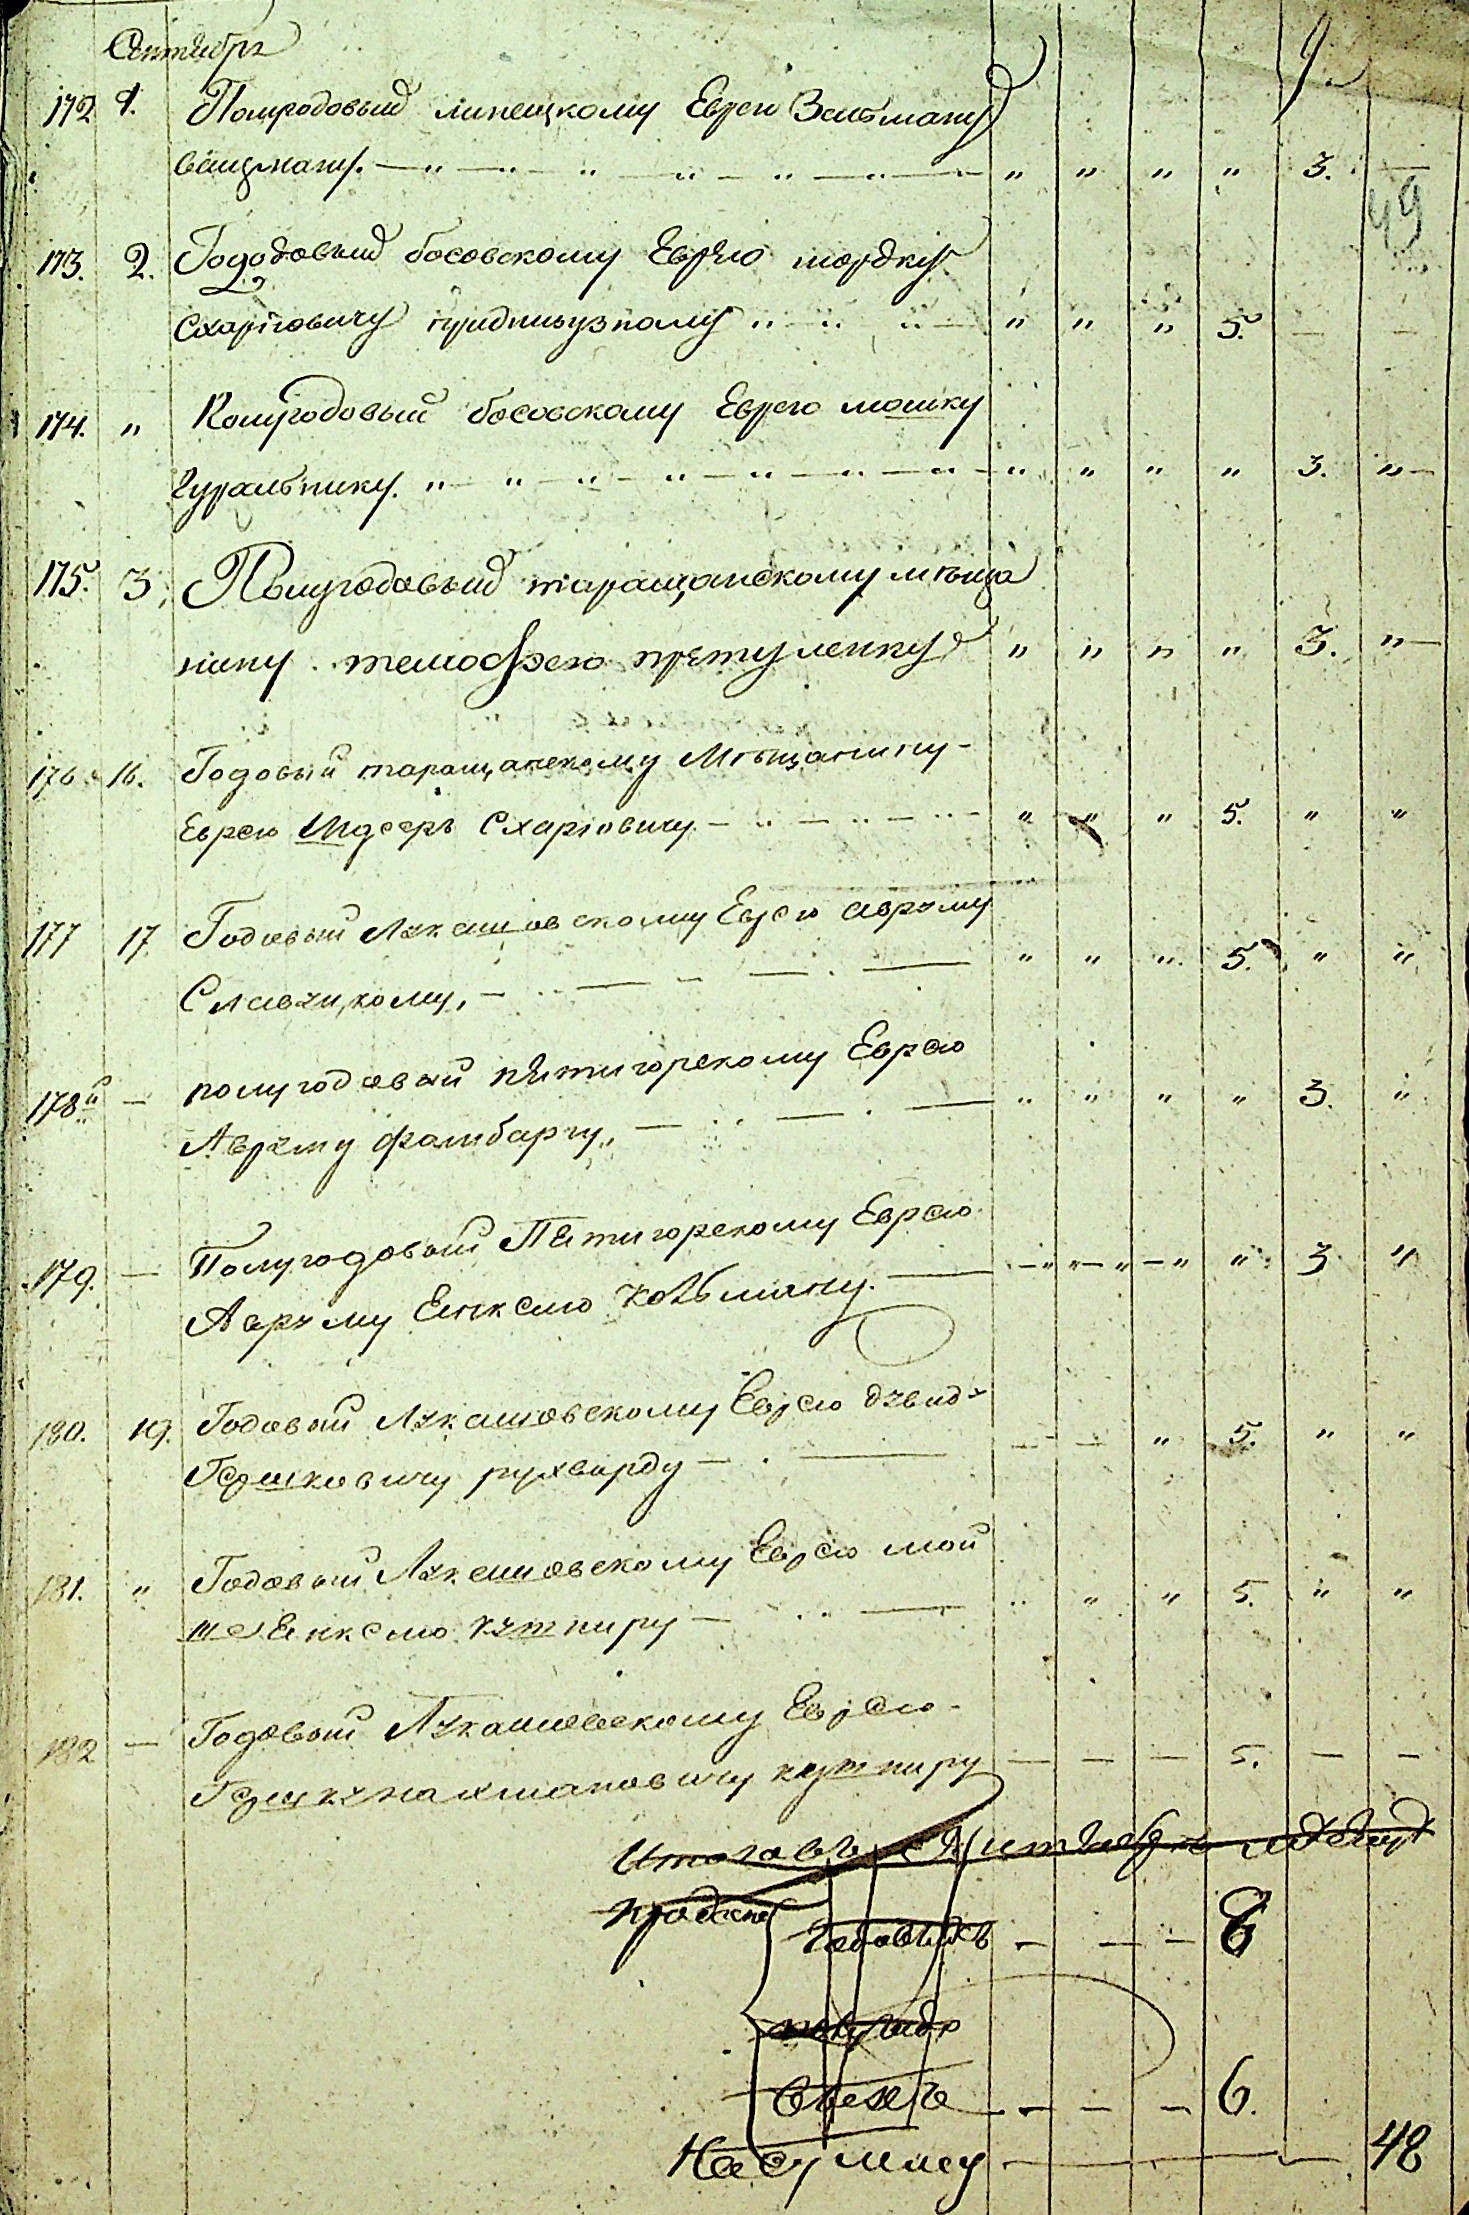 Сентябрь
9.
49
172 1. Полугодовый липецкому Еврею Зельману
Вайцману. " " " " 3. —
173. 2. Гододовый босовскому Еврею мордку
Схарiовичу " " " 5. — —
174. " Полугодовый босовскому Еврею мошку
Гуральнику. " " " " 3. "
175. 3 Полугодовый таращанскому мѣща
нину темофею " " " " 3. "
176. 16. Годовый таращанскому Мѣщанину
Еврею Схарiовичу " " " 5. " "
177 17 Годовый Лукашовскому Еврею Авруму
" " " 5. " "
178й — полугодовый пятигорскому Еврею
Авруму фалибаргу " " " " 3. "
179. — Полугодовый Пятигорскому Еврею
Авруму Енкелю Кольману. " " " " 3 "
180. 19. Годовый Лукашовскому Еврею давид
Гершковичу — — " 5. " "
181. " Годовый Лукашовскому Еврею мой
ше Енкелю кушниру " " " 5. " "
182 — Годовый Лукашовскому Еврею
кушниру — — — 5. — —
Итого въ
Продано
Годовыхъ — — — 6
полугодо
Всехъ — — — 6.
На сумму — 48